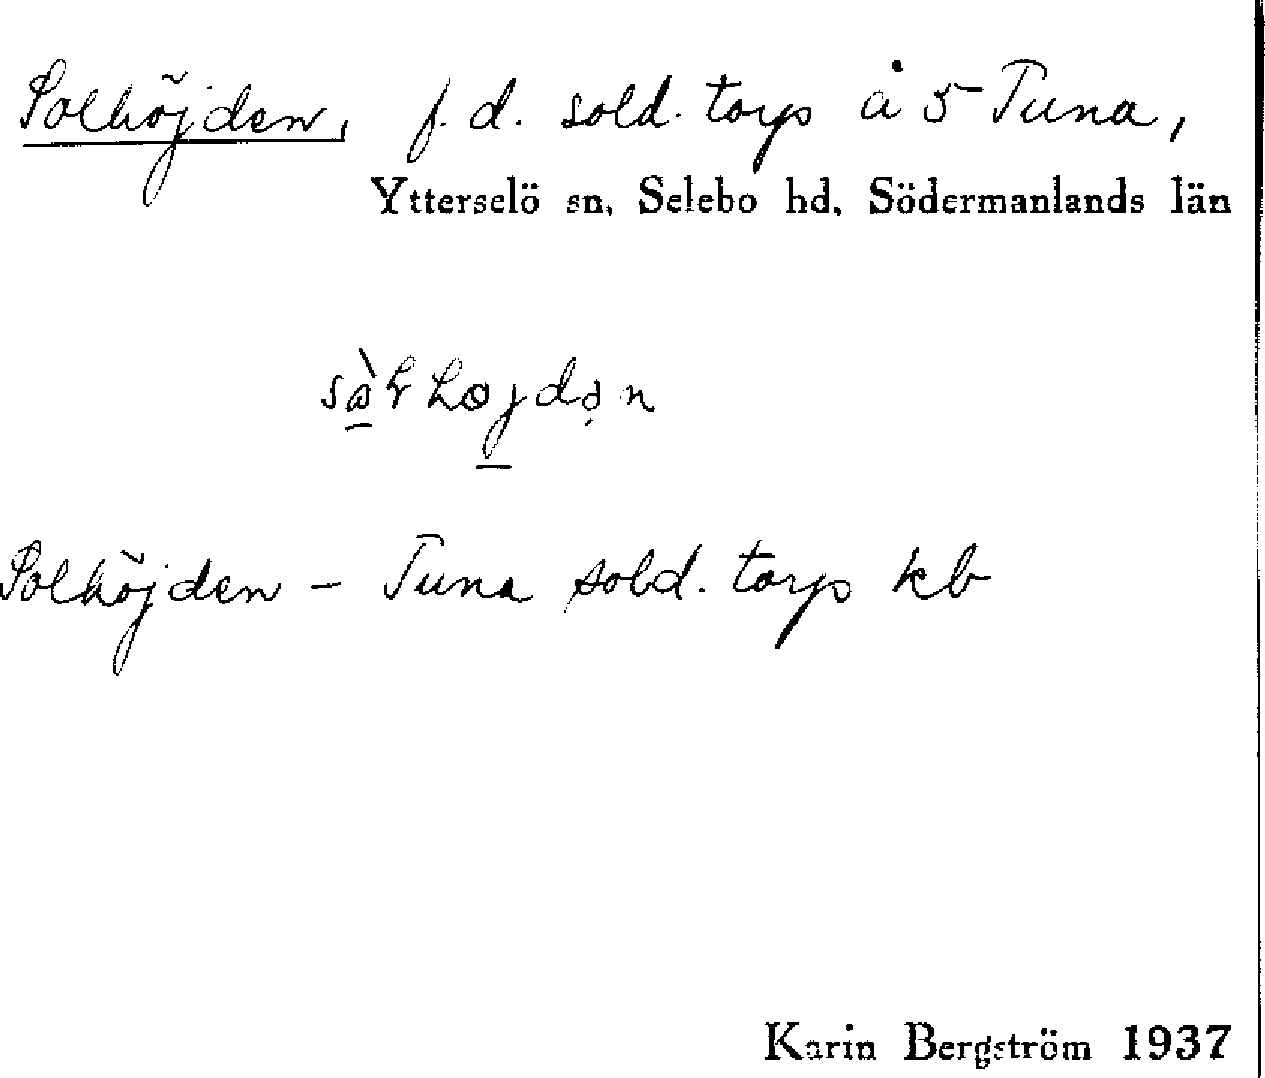 Solhöjden, f. d. sold. torp å 5 Tuna,
Ytterselö sn, Selebo hd, Södermanlands län
Solhöjden – Tuna sold. torp kb
Karin Bergström 1937